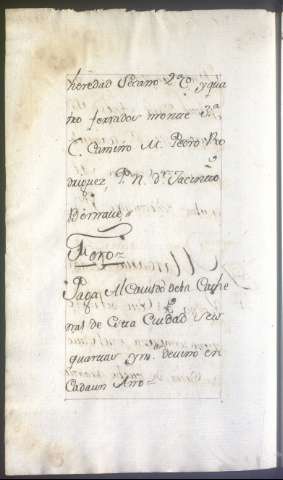 heredad Secano 2ª C. y qua
tro ferrados monte 3ª
C. Camino M. Pedro Ro
driguez P. N. dn Jacinto
Bernave
Foro
Paga Al Cavildo de la Cathe
ral de esta Ciudad Seis
quartas y ms. de vino en
Cada un Año